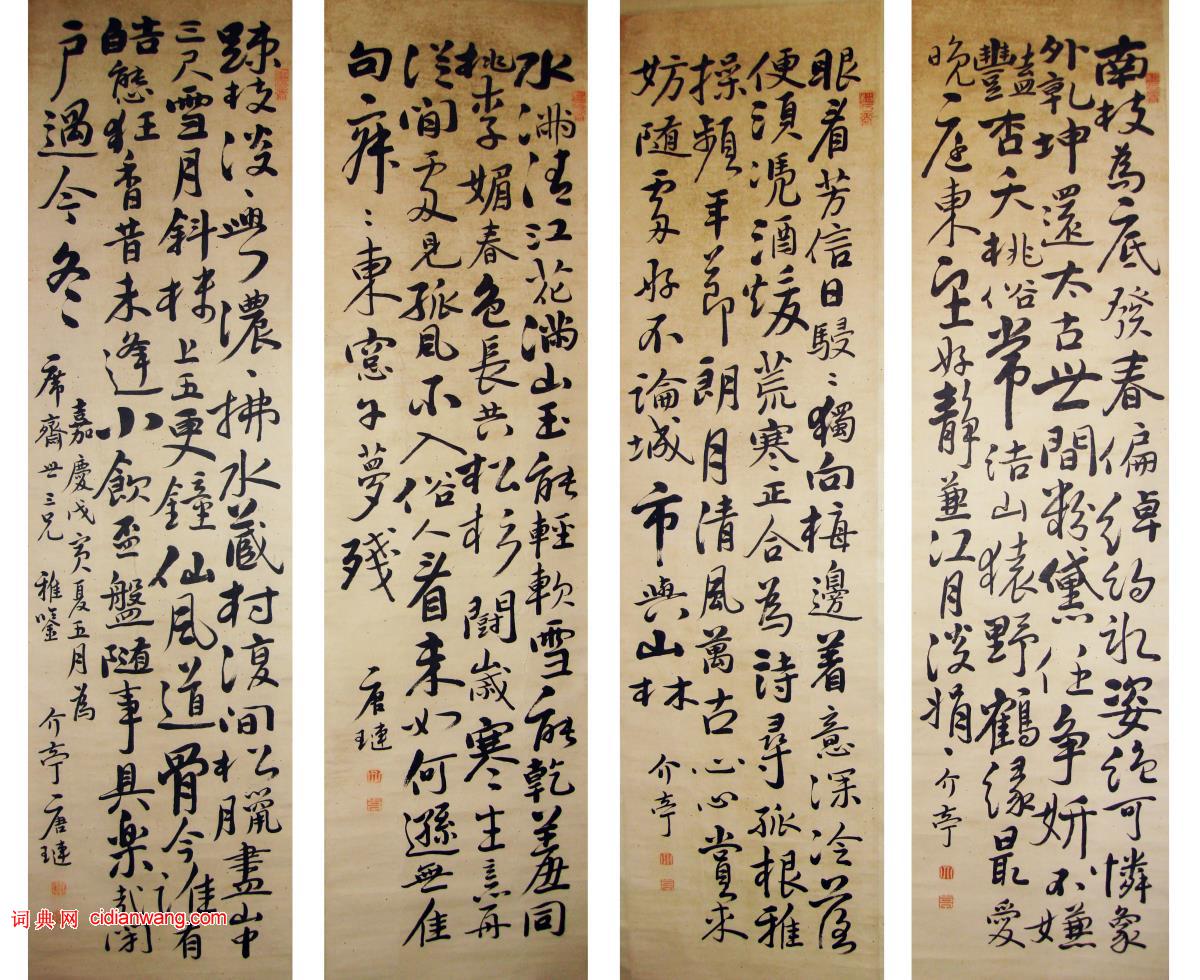 南枝為底發春偏綽約冰姿絕可憐象
外乾坤還太古世間粉黛任爭妍不嫌
豔杏夭桃俗常結山猿野鶴緣最愛
晚庭東望好靜兼江月淡娟〻介亭
眼看芳信日駸〻獨向梅邊着意深冷落
便須憑酒煖荒寒正合為詩尋孤根雅
操頻年節朗月清風萬古心心賞未
妨隨處好不論城市與山林 介亭
水滿清江花滿山玉能輕軟雪能乾羞同
桃李媚春色長共松杉鬪歲寒生意再
從閒處見孤風不入俗人看來如何遜無佳
句寂〻東窗午夢殘 唐璉
疎枝淡〻興濃〻拂水藏村復間松臘盡山中
三尺雪月斜樓上五更鐘仙風道骨今誰有
皓態狂香昔未逢小飲盃盤隨事具樂哉閉
戶過今冬
嘉慶戊寅夏五月為
席齋世三兄 雅鑒 介亭唐璉
词典网 cidianwang.com